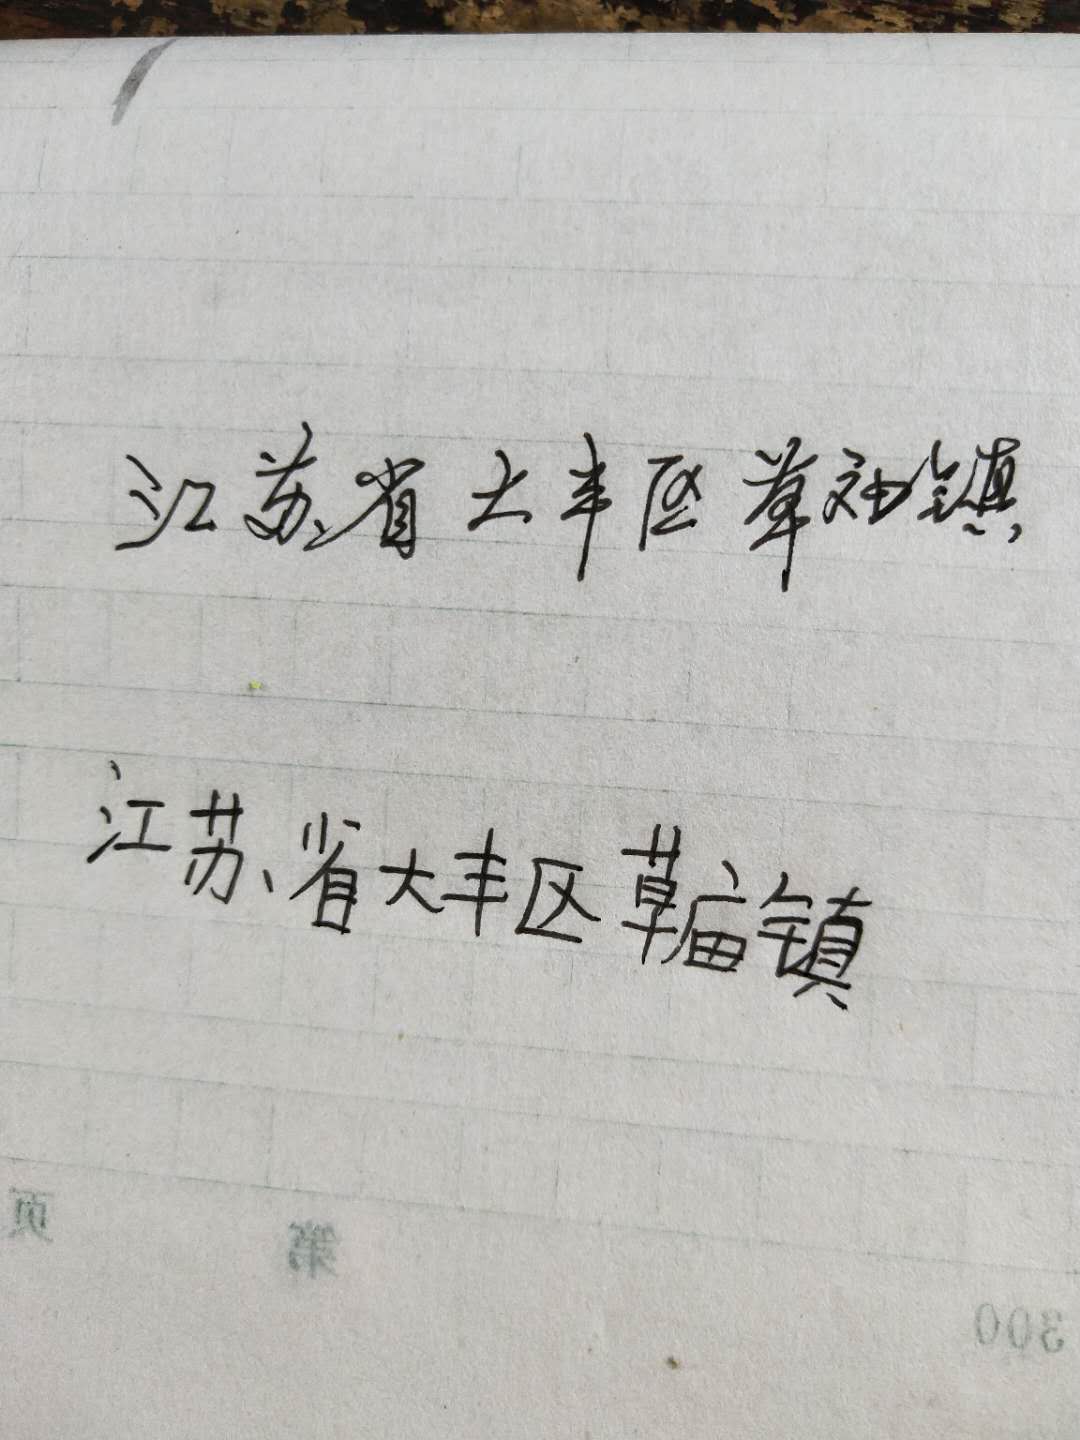 江苏省大丰区草庙镇
江苏省大丰区草庙镇
页 第
300